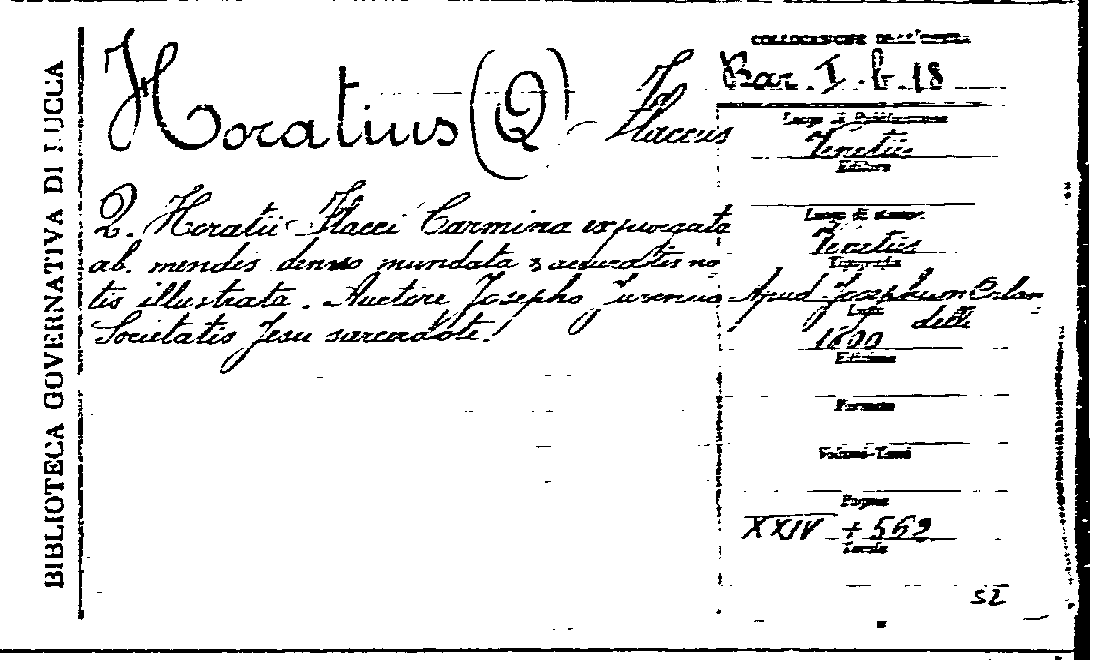 BIBLIOTECA GOVERNATIVA DI LUCCA
Horatius (Q) Flaccus
Q. Horatii Flacci Carmina expurgata
ab. mendis denuo mundata & accuratis no
tis illustrata. Auctore Josepho Juvencio
Societatis Jesu sarcerdote.
COLLOCAZIONE DELL'OPERA
Bar. I. b. 18
Luogo di Pubblicazione
Venetiis
Editore
Luogo di stampa
Venetiis
Tipografia
Apud Josephum Orlan
delli
1800
Edizione
Formato
Volumi-Tomi
Pagine
XXIV + 569
Tavole
52